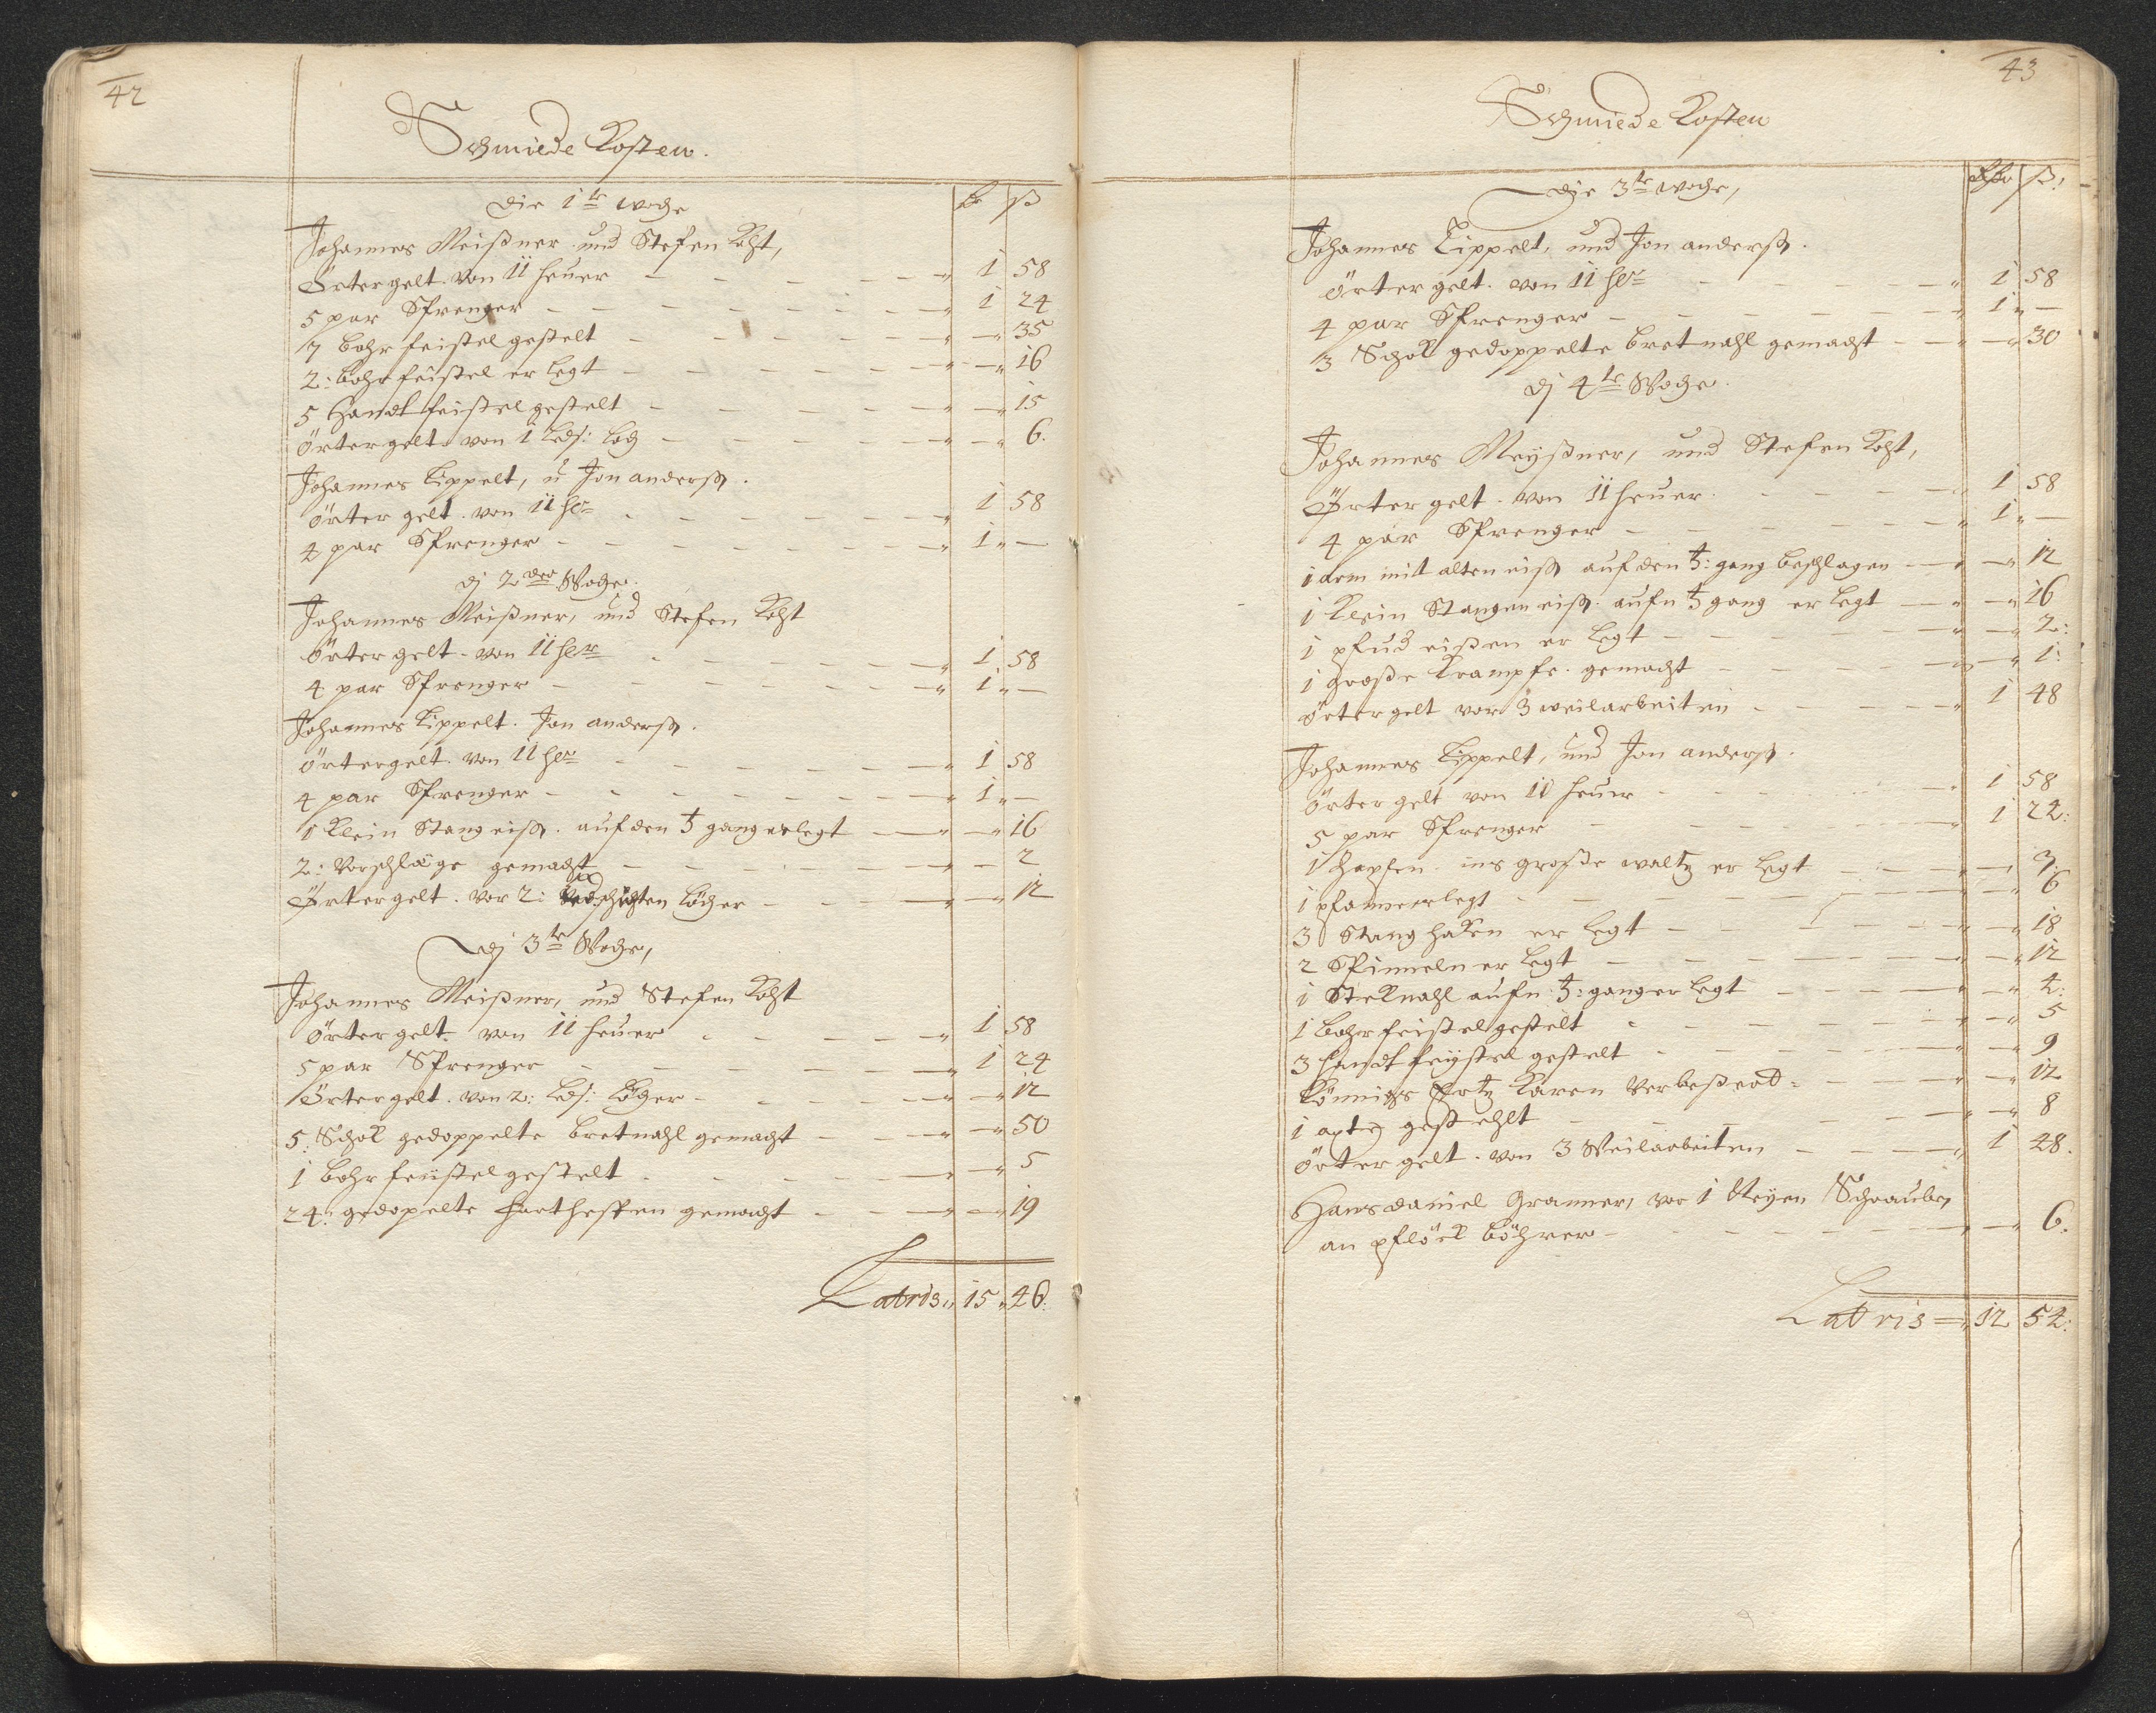 42
Schmiede Kosten.
Die 1te woche
Johannes Meißner und Stefen Koht,
Örtergelt von 11 heuer 1 58
5 par Sprenger 1 24
7 bohr feistel gestelt 35
2: bohr feistel er legt 16
5 Handt feistel gestelt 15
Örtergelt von 1 loch 6.
Johannes Lippelt, u Jon anderß.
örter gelt. von 11 hr 1 58
4 par Sprenger 1 —
dj 2der Woche.
Johannes Meißner, und Stefen Koht
Örter gelt. von 11 her 1 58
4 par Sprenger 1 —
Johannes Lippelt. Jon anderß.
örtergelt. von 11 her 1 58
4 par Sprenger 1 —
1 Klein Stang eiß. auf den gang erlegt 16
2: Vorschläge gemacht 2
Örtergelt. vor 2: löcher 12
dj 3te Woche,
Johannes Meißner, und Stefen Koht
örter gelt. von 11 heuer 1 58
5 par Sprenger 1 24
Örtergelt. von 2: löcher 12
5: Schok gedoppelte bretnahl gemacht 50
1 bohr feustel gestelt 5
24: gedopelte gemacht 19
Latris 15 46:
43
Schmiede Kosten
Die 3te woche,
Johannes Lippelt, und Jon anderß.
örter gelt. von 11 her 1 58
4 par Sprenger 1 —
3 Schok gedoppelte bretnahl gemacht 30
dj 4te Woche.
Johannes Meyßner, und Stefen Koht,
Örter gelt. von 11 heuer 1 58
4 par Sprenger 1 —
1 arm mit alten eiß auf den gang beschlagen 12
1 Klein Stangen eiß. aufn gang er legt 16
1 eißen er legt 2:
1 große Krampfe. gemacht 1:
örter gelt vor 3 weilarbeiten 1 48
Johannes Lippelt, und Jon anderß.
örter gelt von 11 heuer 1 58
5 par Sprenger 1 24:
1 Zapfen ins große er legt 3:
1 pfanne erlegt 6
3 Stang haken er legt 18
2 er legt 12
1 Steknahl aufn gang er legt 4:
1 bohr feistel gestelt 5
3 handt feystel gestelt 9
Ertz Karen Verbeßert 12
1 gestehlt 8
örter gelt. von 3 Weilarbeiten 1 48.
Hans daniel Granner, vor 1 Neyen Schraube,
an pflöck böhrer 6.
Latris 12 54: